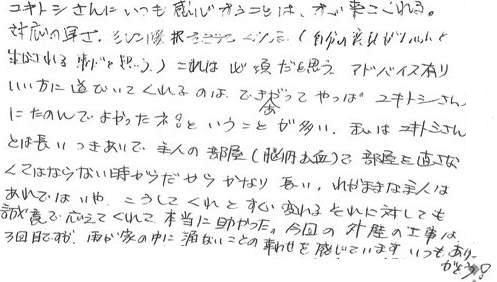 ユキトシさんにいつも感心することは、すぐ来てくれる。
対応の早さ、そして選択させてくれる（自分の意見がピシャッと
生かされる事だと思う）これは必須だと思う アドバイス有り
いい方に導びいてくれるのは、でき会がってやっぱ ユキトシさん
にたのんでよかったネ！ということが多い、私はユキトシさん
とは長いつきあいで、主人の部屋（脳内出血）で部屋を直さな
くてはならない時からだからかなり長い、わがままな主人は
あれではいや、こうしてくれとすぐ変わる それに対しても
誠意で応えてくれて、本当に助かった。今回の外壁の工事は
3回目ですが、雨が家の中に漏ないことの幸わせを感じています いつもあり
がとう！